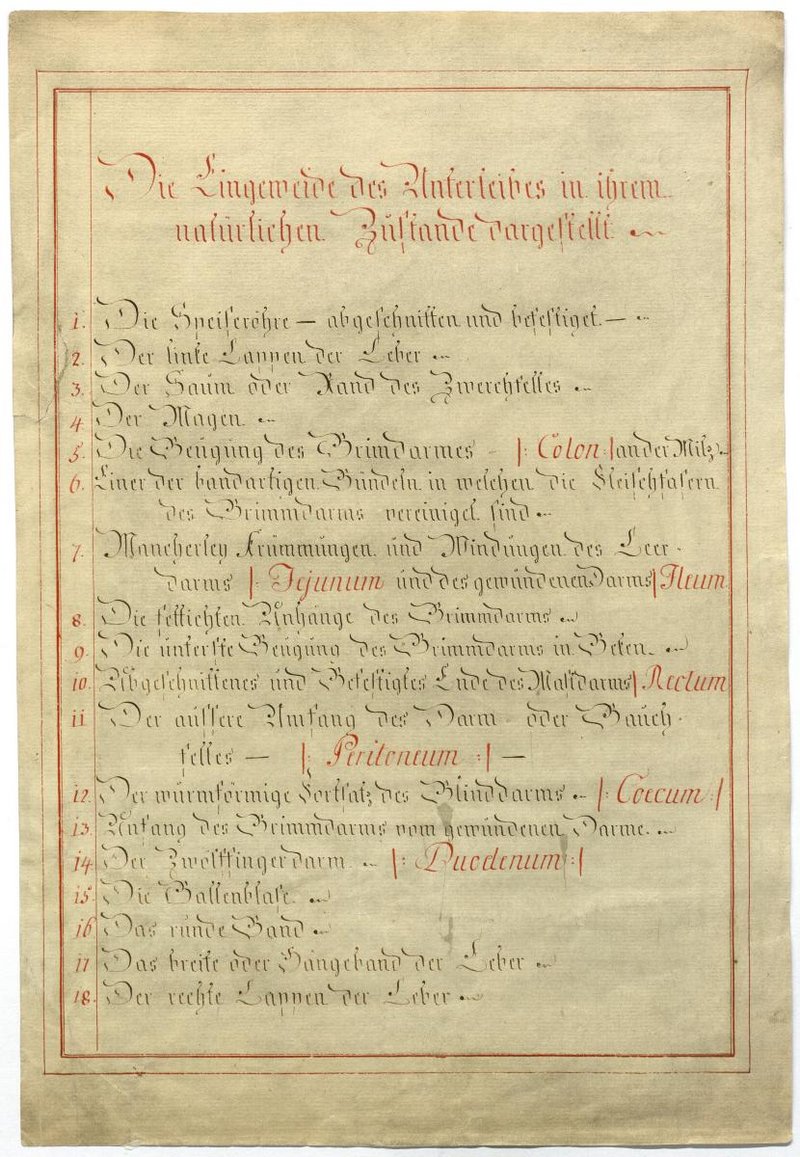 Die Eingeweide des Unterleibes in ihrem
natürlichen Zustande dargestellt.
1. Die Speiseröhre — abgeschnitten und befestiget. —
2. Der linke Lappen der Leber
3. Der Saum oder Rand des Zwerchfelles
4. Der Magen.
5. Die Beugung des Brimdarmes |: Colon :| an der Milz
6. Einer der bandartigen Bündeln in welchen die Fleischfasern
des Brimmdarms vereiniget sind
7. Mancherley Krümmungen und Windungen des Leer-
darms |: Jejunum und des gewundenen Darms| Ileum
8. Die fettichten Anhänge des Brimmdarms
9. Die unterste Beugung des Brimmdarms in Beken.
10. Abgeschnittenes und Befestigtes Ende des Mastdarms| Rectum
11 Der äussere Umfang des Darm- oder Bauch-
felles — |: Peritoneum :| —
12. Der wurmförmige Fortsatz des Blinddarms |: Coecum :|
13. Anfang des Brimmdarms vom gewundenen Darme.
14. Der Zwölffingerdarm. |: Duodenum :|
15 Die Gallenblase.
16 Das runde Band
17 Das breite oder Hängeband der Leber
18. Der rechte Lappen der Leber